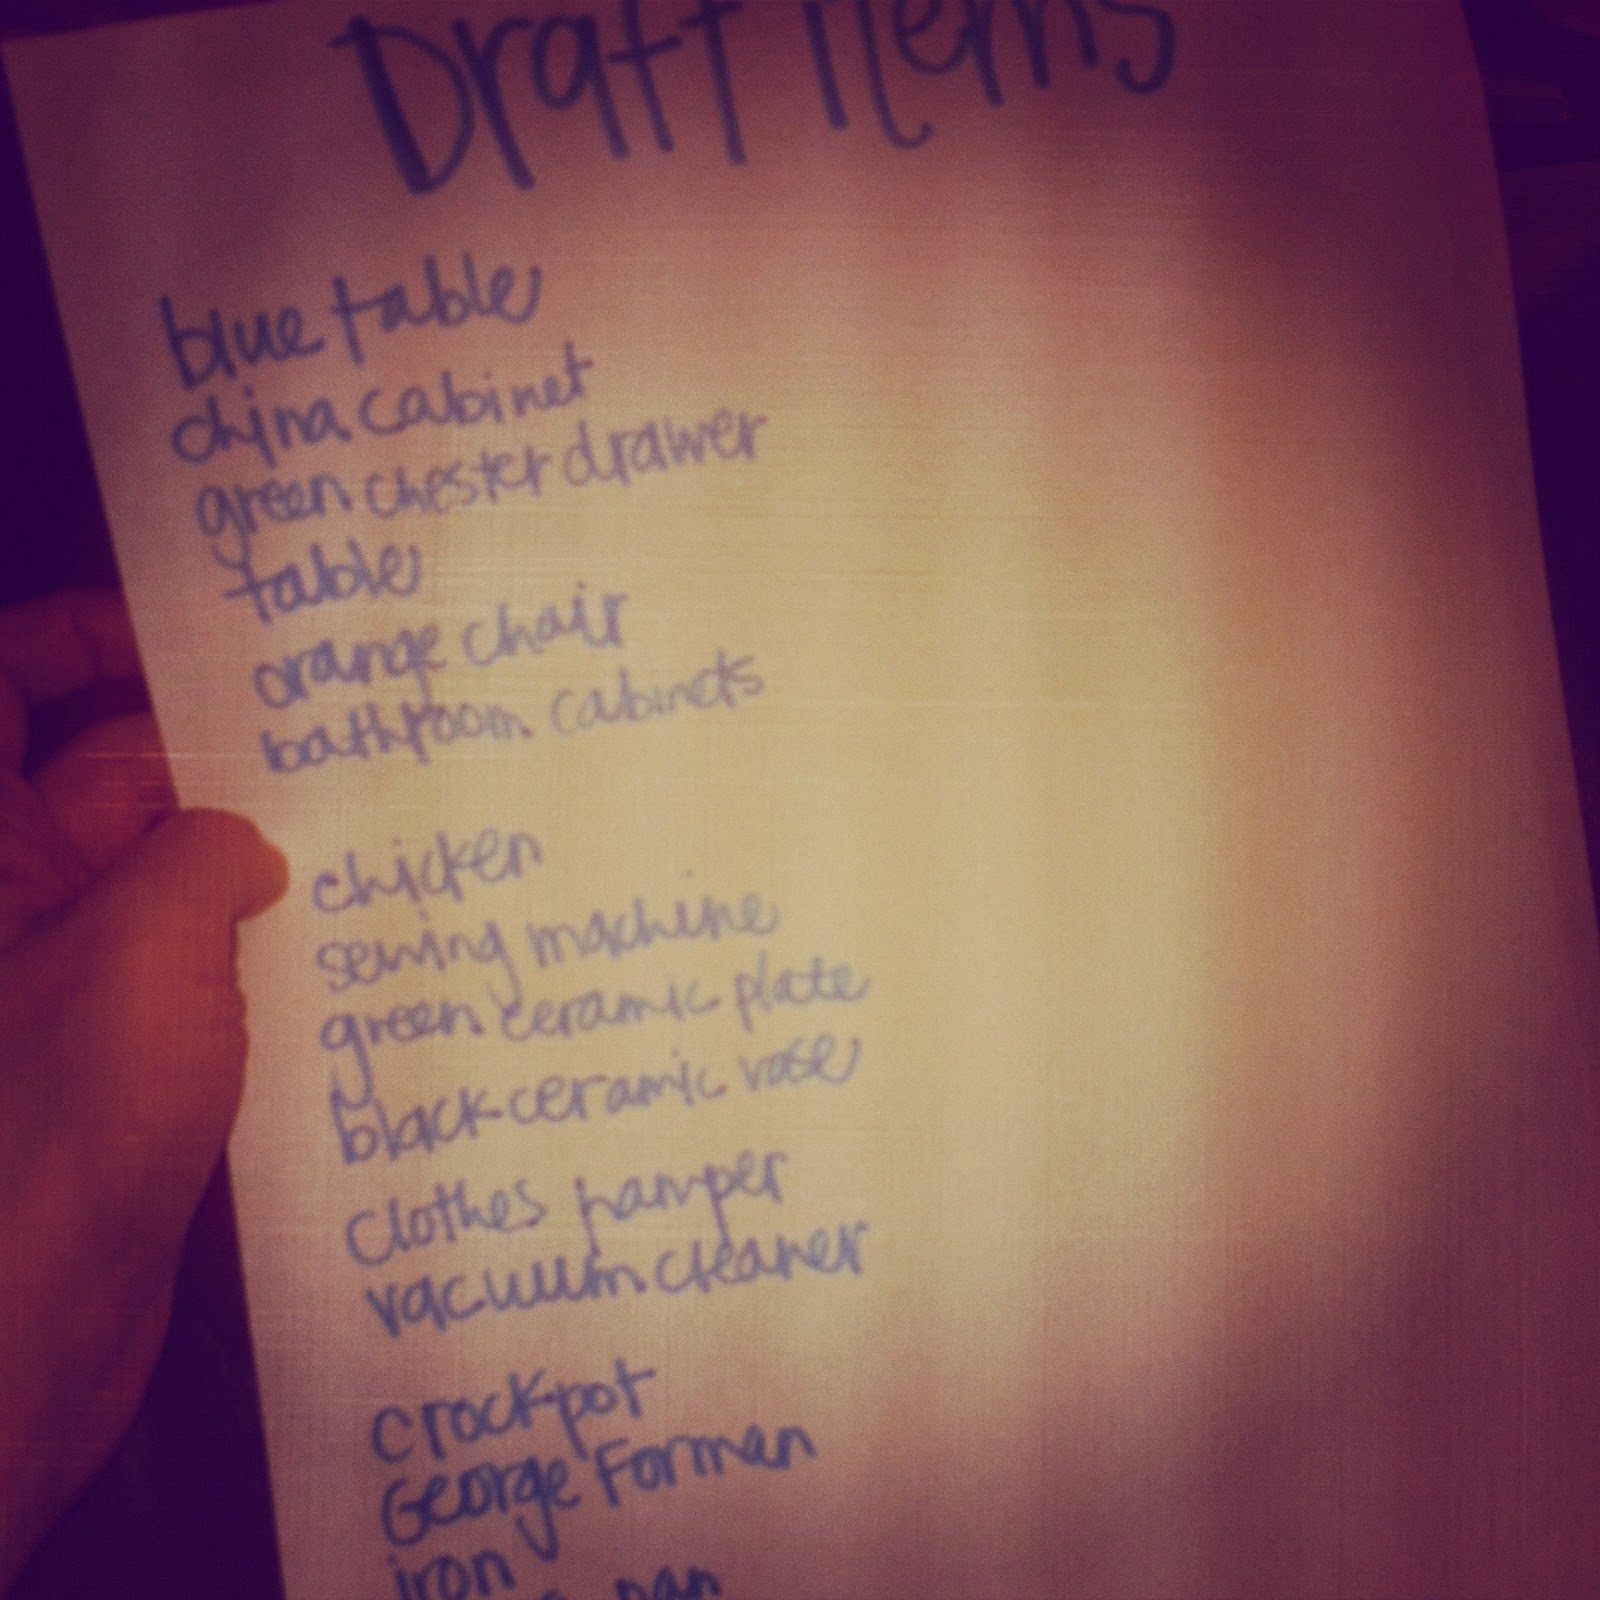 Draft Items
blue table
china cabinet
green chester drawer
table
orange chair
bathroom cabinets
chicken
sewing machine
green ceramic plate
black ceramic vase
clothes hamper
vacuum cleaner
crockpot
George Forman
iron
pan